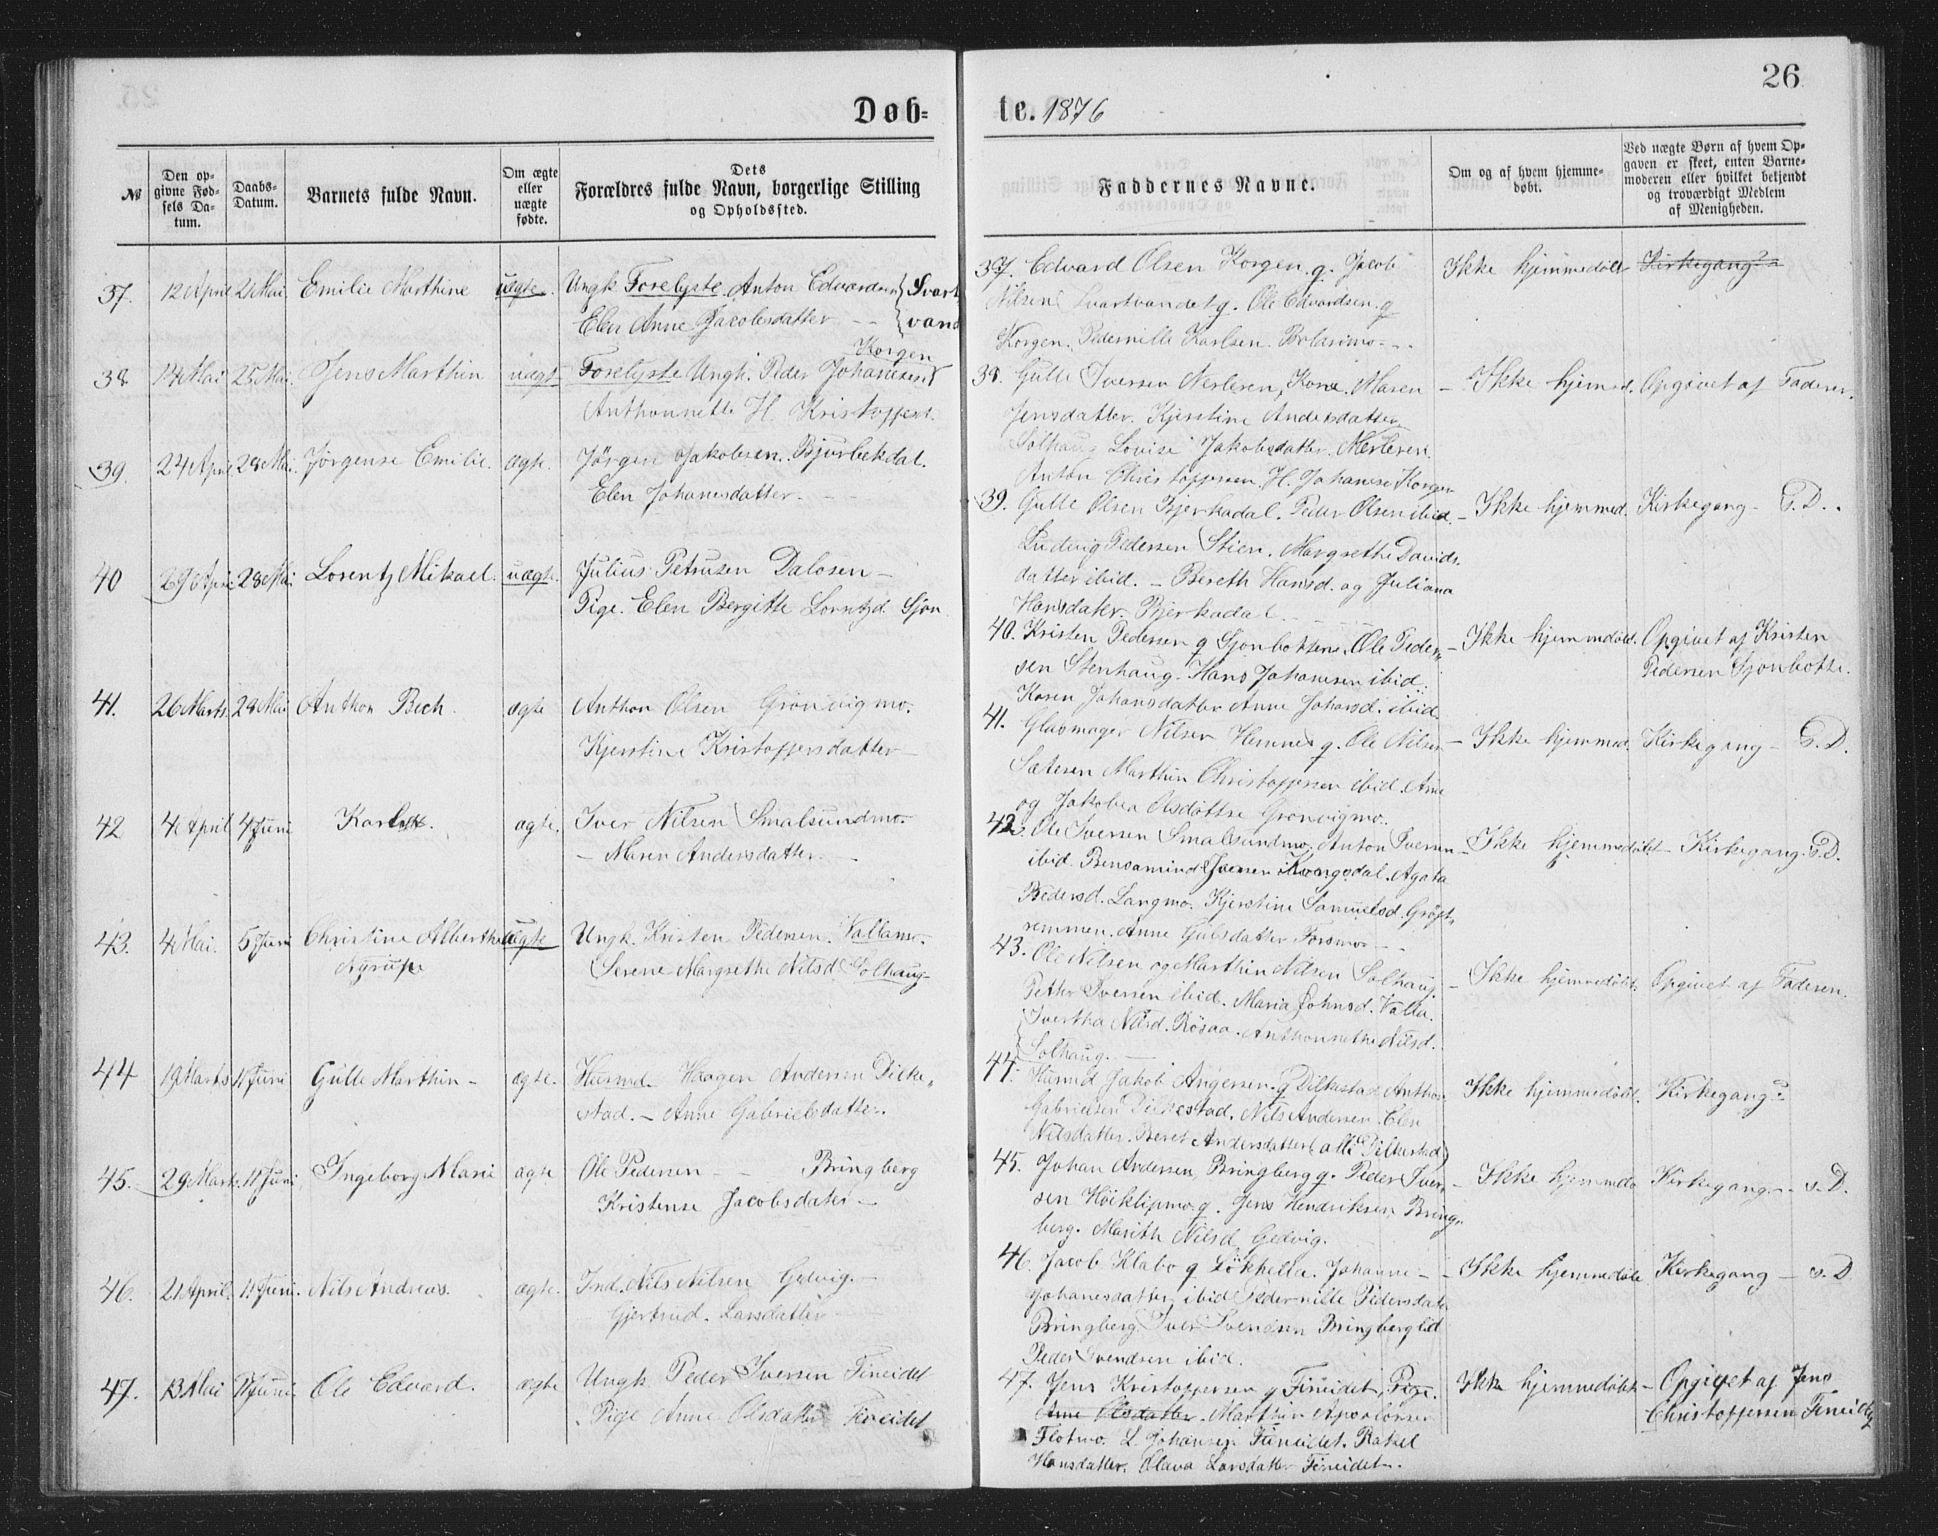 26
Døb=
te. 1876
№
Den op-
givne Fød-
sels Da-
tum.
Daabs-
Datum.
Barnets fulde Navn.
Om ægte
eller
uægte
fødte.
Dets
Forældres fulde Navn, borgerlige Stilling
og Opholdssted.
Faddernes Navne.
Om og af hvem hjemme-
døbt.
Ved uægte Børn af hvem Op-
gaven er skeet, enten Barne-
moderen eller hvilket bekjendt
og troværdigt Medlem
af Menigheden.
37. 12 April 21 Mai Emilie Marthine uægte. Ungk Forelyste Anton Edvardsen Svart
Elen Anne Jacobsdatter -- vand
Korgen
38 14 Mai 25 Mai. Jens Marthin uægt Forelyste Ungk. Peder Johannesen
Anthonnette H. Kristoffers.
39. 24 April 28 Mai. Jørgense Emilie. ægte. Jørgen Jakobsen. Bjurbekdal.
Elen Johanesdatter.
40 29 April 28 Mai. Lorentz Mikael. uægte. Julius Petrusen Dalosen -
Pige. Elen Bergitte Lorntzd. Sjon
41. 26 Marts. 28 Mai Anthon Bech. ægte Anthon Olsen Grønvigmo.
Kjerstine Kristoffersdatter
42 4 April 4 Juni ægte. Iver Nilsen Smalsundmo.
- Maren Andersdatter.
43. 4 Mai. 5 Juni Christine Alberthea uægte Ungk. Kristen Pedersen. Vallamo.
Nyrup Serene Margrethe Nilsd. Solhaug
44 19 Marts 11 Juni Gulle Marthin - ægte. Husmd. Haagen Andersen Dilke-
stad. - Anne Gabrielsdatter.
45. 29 Marts. 11 Juni Ingeborg Marie ægte Ole Pedersen - - Bringberg
Kristense Jacobsdater -
46. 21 April. 11 Juni. Nils Andreas. ægte. Ind. Nils Nilsen Gedvig.
Gjertrud. Larsdatter
47. 13 Mai 11 Juni Ole Edvard. ægte Ungk Peder Iversen Fineidet
Pige Anne Olsdatter Fineidet
37. Edvard Olsen Korgen. g. Jacob Ikke hjemmedøbt Kirkegang
Nilsen Svartvandet g. Ole Edvardsen. g
Korgen. Pedernille Karlsen.
38. Gulle Iversen Nerleren, Kone Maren - Ikke hjemd. Opgivet af Faderen.
Jensdatter. Kjerstine Andersdatter
Solhaug Lovise Jakobsdatter. Nerleren.
Anton Christoffersen. H. Johanse Korgen
39. Gulle Olsen Bjerkadal. Peder Olsen ibid. - Ikke hjemmed. Kirkegang - S. D.
Ludvig Pedersen Stien. Margrethe Davids-
datter ibid. - Bereth Hansd. og Juliana
Hansdater. Bjerkadal
40. Kristen Pedersen g Sjonbotten. Ole Peder- - Ikke hjemmedøbt. Opgivet af Kristen
sen Stenhaug. Hans Johannesen ibid. Pedersen Sjonbotte.
Karen Johansdatter Anne Johansd. ibid.
41. Glasmager Nilsen Hemnes g. Ole Nilsen - Ikke hjemmed. Kirkegang - S. D.
Marthin Christoffersen ibid. Ane
og Jakobea Olsdattre Grønvigmo.
42. Ole Iversen Smalsundmo. Anton Iversen - Ikke hjemmedøbt - Kirkegang. S. D.
ibid. Bensamin Iversen Korgsdal. Agata
Pedersd. Langmo. Kjerstine Samuelsd. Grøft-
remmen. Anne Gulsdatter Forsmo
43. Ole Nilsen og Marthin Nilsen Solhaug. - Ikke hjemmedøbt. Opgivet af Faderen.
Petter Iversen ibid. Maria Johnsd. Valla.
Ivertha Nilsd. Røsaa. Anthonnethe Nilsd.
Solhaug.
44. Husmd Jakob Angersen. g Dilkestad Anthon Ikke hjemmedøbt. Kirkegang
Gabrielsen Dilkestad. Nils Andersen. Elen
Nilsdatter. Beret Andersdatter (alle Dilkestad)
45. Johan Andersen, Bringberg g. Peder Iver- - Ikke hjemmedø Kirkegang - s. D.
sen Høiklipmo. g. Jens Hendriksen Bring-
berg. Marith Nilsd Gedvig.
46. Jacob Klabo g Løkhella. Johanne - - Ikke hjemmedøbt Kirkegang - s. D
Johanesdatter ibid Pedernille Pedersdatr
Bringberg. Iver Svendsen Bringberglid
Peder Svendsen ibid.
47. Jens Kristoffersen g Fineidet, Pige. Ikke hjemmedøbt - Opgivet af Jens
Anne Olsdatter. Marthin Apolonsen Christoffersen Fineidet
Flotmo. L. Johansen Fineidet. Rakel
Hansdatter. Olava Larsdatter Fineidet.